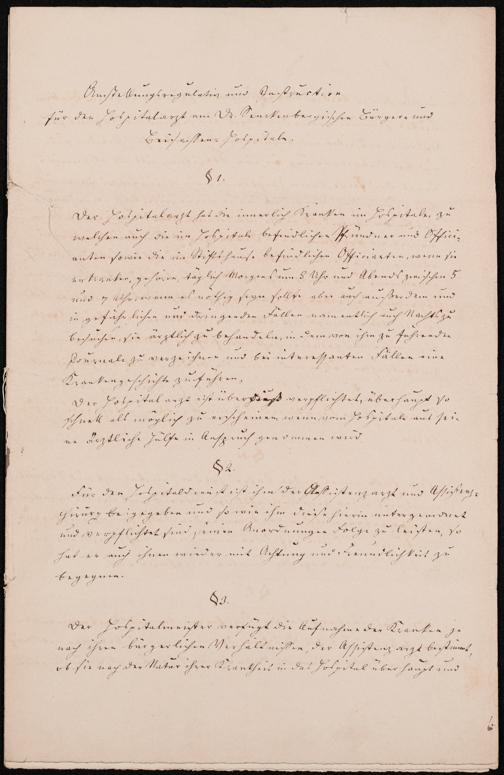 Anstellungsregulativ und Instruction
für den Hospitalarzt am Dr. Senckenbergischen Bürger und
Beisassen Hospitale.
§ 1.
Der Hospitalarzt hat die innerlich Kranken im Hospitale, zu
welchen auch die im Hospitale befindlichen Pfründner und Offici-
anten sowie die im Stiftshause befindlichen Officianten, wenn sie
erkranken, gehören, täglich Morgens um 8 Uhr und Abends zwischen 5
und 7 Uhr, wenn es nöthig seyn sollte aber auch außerdem und
in gefährlichen und dringenden Fällen namentlich auch Nachts zu
besuchen, sie ärztlich zu behandeln, in dem von ihm zu führenden
Journale zu verzeichnen und bei interessanten Fällen eine
Krankengeschichte zu führen.
Der Hospitalarzt ist überdieß verpflichtet, überhaupt so
schnell als möglich zu erscheinen wenn vom Hospitale aus sei-
ne ärztliche Hülfe in Anspruch genommen wird.
§ 2.
Für den Hospitaldienst ist ihm der Assistenzarzt und Assistenz-
chirurg beigegeben und so wie ihm diese hierin untergeordnet
und verpflichtet sind, seinen Anordnungen Folge zu leisten, so
hat er auch ihnen wieder mit Achtung und Freundlichkeit zu
begegnen.
§ 3.
Der Hospitalmeister verfügt die Aufnahme der Kranken je
nach ihren bürgerlichen Verhältnissen, der Assistenzarzt bestimmt,
ob sie nach der Natur ihrer Krankheit in das Hospital überhaupt und